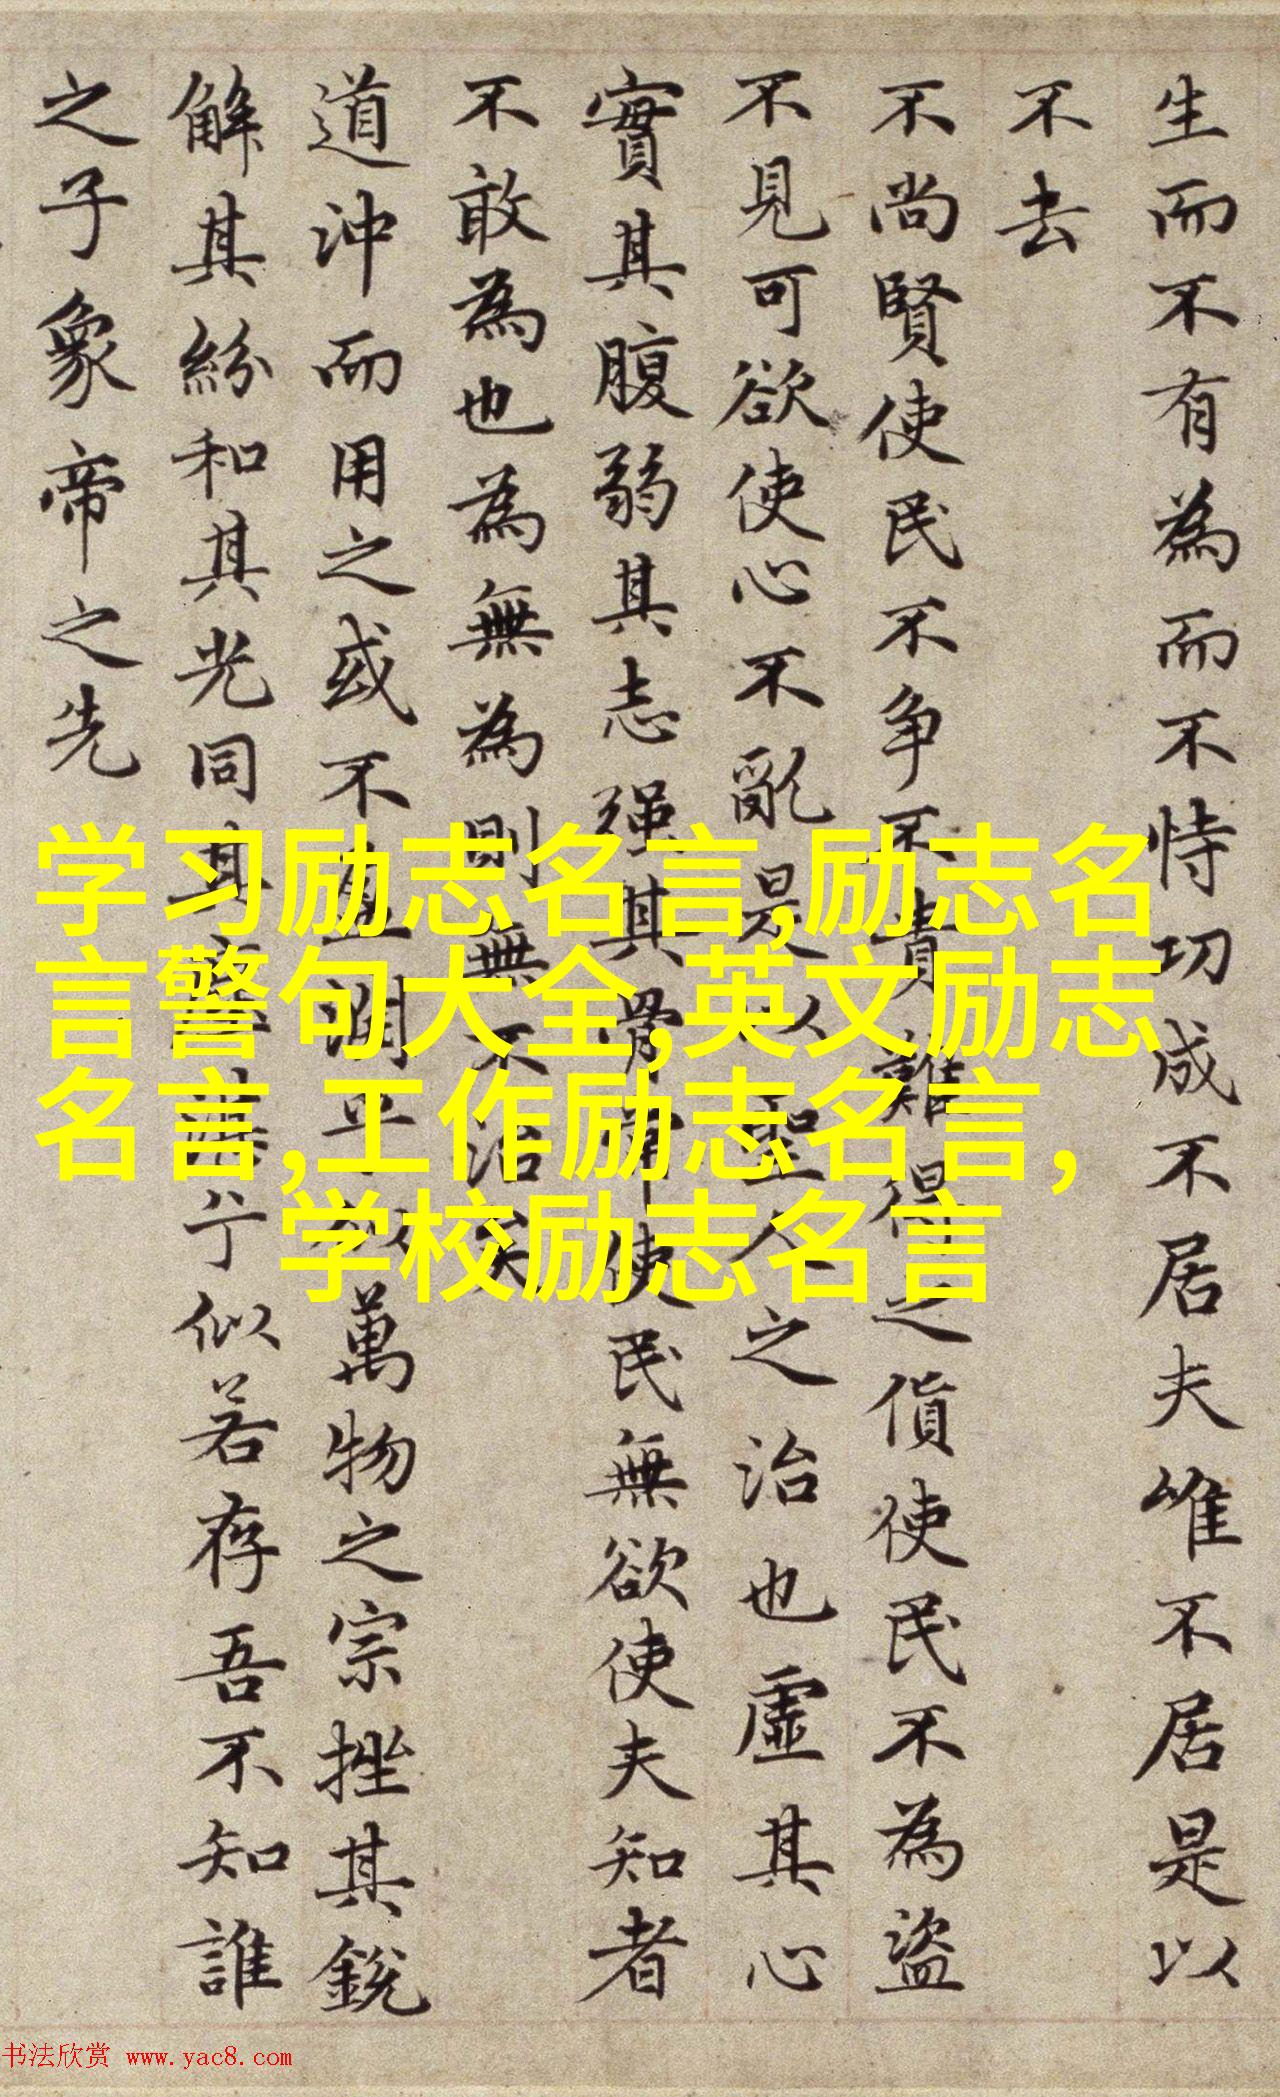 生而不有為而不恃功成不居夫唯不居是以
不去
不尚賢使民不争不貴難得之貨使民不為盗
不見可欲使心不亂是以聖人之治也虛其心
實其腹弱其志强其骨常使民無欲使夫知者
不敢為也為無為則無不治矣
道沖而用之或不盈渊乎似萬物之宗挫其銳
解其紛和其光同其塵湛兮似若存吾不知誰
之子象帝之先
学习励志名言,励志名
言警句大全,英文励志
名言,工作励志名言,
学校励志名言
书法欣赏 www.yac8.com